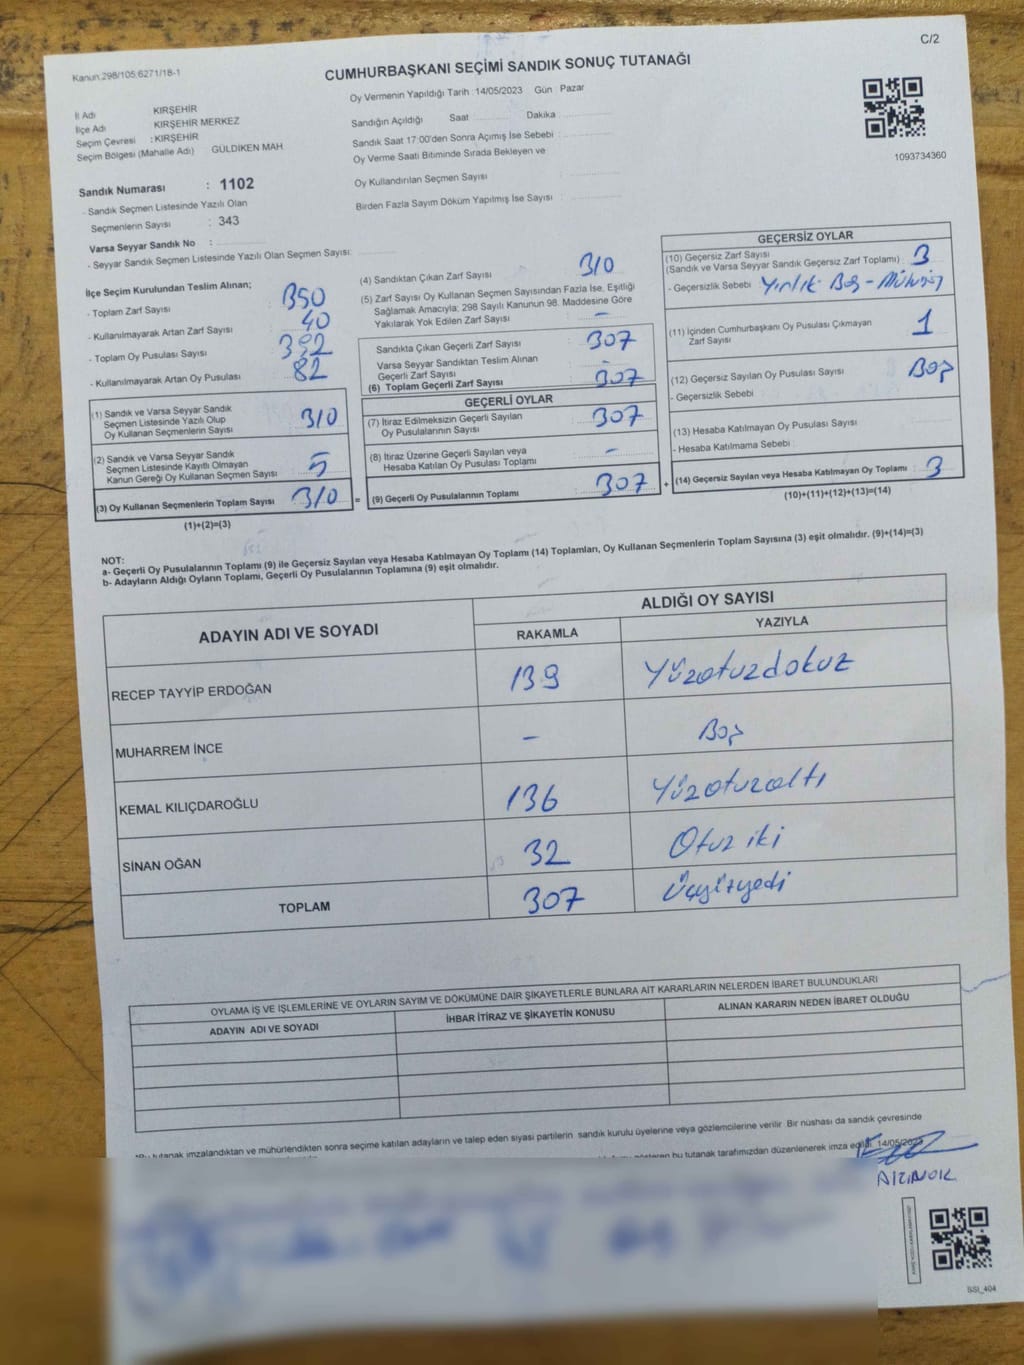 C/2
Kanun:298/105;6271/18-1
CUMHURBAŞKANI SEÇİMİ SANDIK SONUÇ TUTANAĞI
İl Adı KIRŞEHİR
İlçe Adı KIRŞEHİR MERKEZ
Seçim Çevresi : KIRŞEHİR
Seçim Bölgesi (Mahalle Adı) GÜLDİKEN MAH
Sandık Numarası : 1102
- Sandık Seçmen Listesinde Yazılı Olan
Seçmenlerin Sayısı : 343
Varsa Seyyar Sandık No :
- Seyyar Sandık Seçmen Listesinde Yazılı Olan Seçmen Sayısı:
Oy Vermenin Yapıldığı Tarih :14/05/2023 Gün : Pazar
Sandığın Açıldığı Saat Dakika
Sandık Saat 17:00'den Sonra Açımış İse Sebebi :
Oy Verme Saati Bitiminde Sırada Bekleyen ve
Oy Kullandırılan Seçmen Sayısı :
Birden Fazla Sayım Döküm Yapılmış İse Sayısı :
1093734360
İlçe Seçim Kurulundan Teslim Alınan;
- Toplam Zarf Sayısı 350
- Kullanılmayarak Artan Zarf Sayısı 40
- Toplam Oy Pusulası Sayısı 392
- Kullanılmayarak Artan Oy Pusulası 82
(1) Sandık ve Varsa Seyyar Sandık
Seçmen Listesinde Yazılı Olup
Oy Kullanan Seçmenlerin Sayısı 310
(2) Sandık ve Varsa Seyyar Sandık
Seçmen Listesinde Kayıtlı Olmayan
Kanun Gereği Oy Kullanan Seçmen Sayısı 5
(3) Oy Kullanan Seçmenlerin Toplam Sayısı 310 =
(1)+(2)=(3)
(4) Sandıktan Çıkan Zarf Sayısı 310
(5) Zarf Sayısı Oy Kullanan Seçmen Sayısından Fazla İse, Eşitliği
Sağlamak Amacıyla; 298 Sayılı Kanunun 98. Maddesine Göre
Yakılarak Yok Edilen Zarf Sayısı : -
Sandıkta Çıkan Geçerli Zarf Sayısı : 307
Varsa Seyyar Sandıktan Teslim Alınan
Geçerli Zarf Sayısı : -
(6) Toplam Geçerli Zarf Sayısı : 307
GEÇERLİ OYLAR
(7) İtiraz Edilmeksizin Geçerli Sayılan
Oy Pusulalarının Sayısı : 307
(8) İtiraz Üzerine Geçerli Sayılan veya
Hesaba Katılan Oy Pusulası Toplamı : -
(9) Geçerli Oy Pusulalarının Toplamı : 307 +
GEÇERSİZ OYLAR
(10) Geçersiz Zarf Sayısı
(Sandık ve Varsa Seyyar Sandık Geçersiz Zarf Toplamı) : 3
- Geçersizlik Sebebi : Yırtık Boş -
(11) İçinden Cumhurbaşkanı Oy Pusulası Çıkmayan
Zarf Sayısı : 1
(12) Geçersiz Sayılan Oy Pusulası Sayısı : Boş
- Geçersizlik Sebebi
(13) Hesaba Katılmayan Oy Pusulası Sayısı :
- Hesaba Katılmama Sebebi :
(14) Geçersiz Sayılan veya Hesaba Katılmayan Oy Toplamı : 3
(10)+(11)+(12)+(13)=(14)
NOT:
a- Geçerli Oy Pusulalarının Toplamı (9) ile Geçersiz Sayılan veya Hesaba Katılmayan Oy Toplamı (14) Toplamları, Oy Kullanan Seçmenlerin Toplam Sayısına (3) eşit olmalıdır. (9)+(14)=(3)
b- Adayların Aldığı Oyların Toplamı, Geçerli Oy Pusulalarının Toplamına (9) eşit olmalıdır.
ADAYIN ADI VE SOYADI
ALDIĞI OY SAYISI
RAKAMLA YAZIYLA
RECEP TAYYİP ERDOĞAN 139 Yüzotuzdokuz
MUHARREM İNCE - Boş
KEMAL KILIÇDAROĞLU 136 Yüzotuzaltı
SİNAN OĞAN 32 Otuz iki
TOPLAM 307 Üçyüzyedi
OYLAMA İŞ VE İŞLEMLERİNE VE OYLARIN SAYIM VE DÖKÜMÜNE DAİR ŞİKAYETLERLE BUNLARA AİT KARARLARIN NELERDEN İBARET BULUNDUKLARI
ADAYIN ADI VE SOYADI İHBAR İTİRAZ VE ŞİKAYETİN KONUSU ALINAN KARARIN NEDEN İBARET OLDUĞU
tutanak imzalandıktan ve mühürlendikten sonra seçime katılan adayların ve talep eden siyasi partilerin sandık kurulu üyelerine veya gözlemcilerine verilir. Bir nüshası da sandık çevresinde
bu tutanak tarafımızdan düzenlenerek imza 14/05/2023
SSI_404